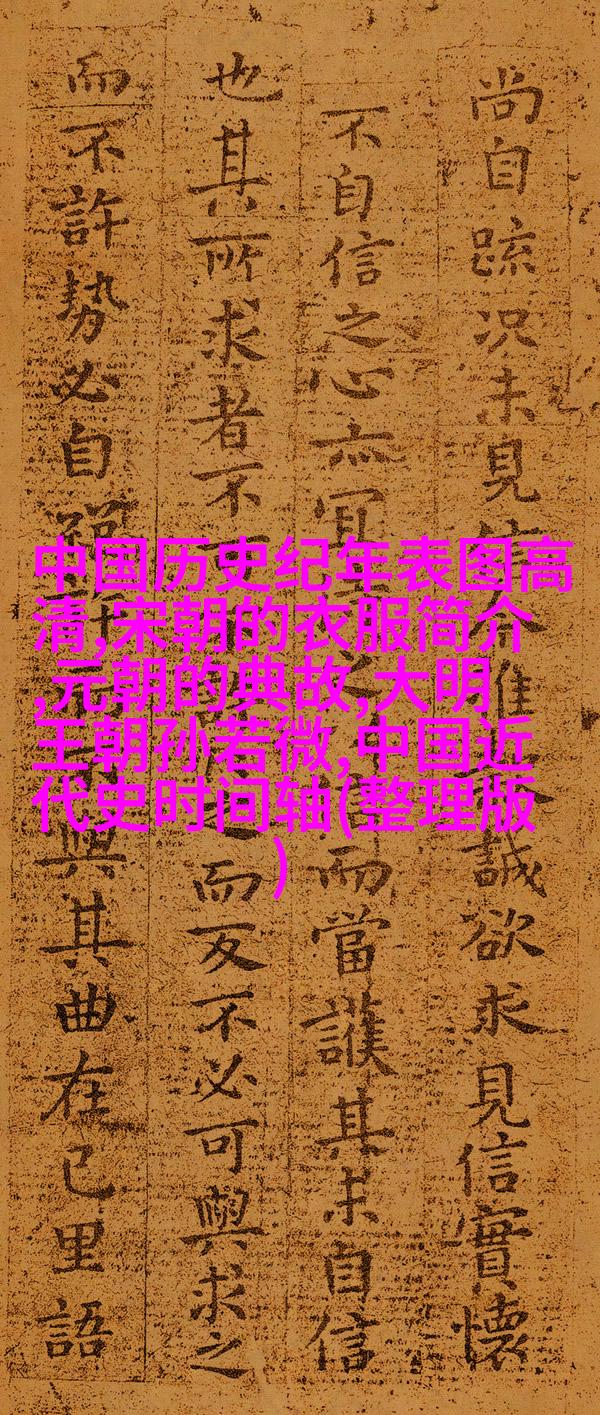 尚自疏况未見誰誠欲求見信實懷
不自信之心亦宜而當護其未自信
也其所求者不而反不必可與求之
而不許勢必自與其曲在己里語
中国历史纪年表图高
清,宋朝的衣服简介
,元朝的典故,大明
王朝孙若微,中国近
代史时间轴(整理版
)